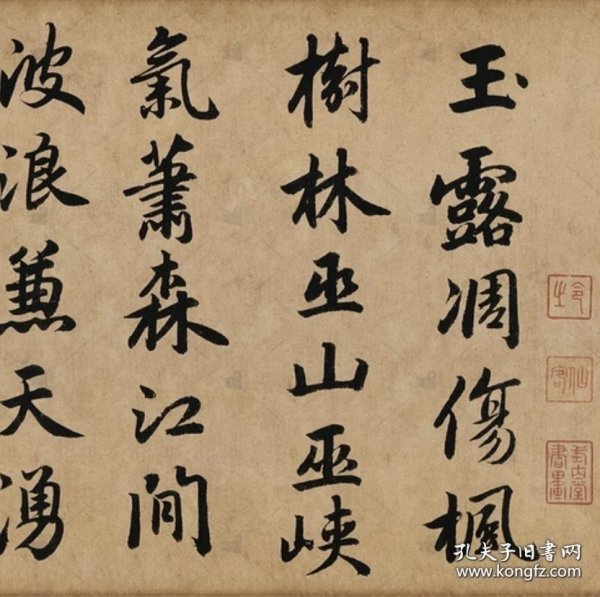 玉露凋傷楓
樹林巫山巫峽
氣蕭森江間
波浪蒹天湧
孔夫子旧書网
www.kongfz.com